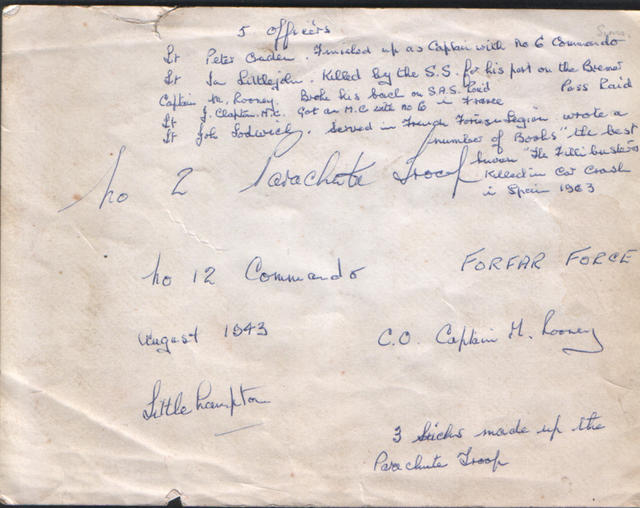 5 Officers
Lt Peter Ouden. Finished up as Captain with No 6 Commando
Lt Ian Littlejohn. Killed by the S.S. for his part on the Bremet
Poss Raid
Captain M. Rooney. Broke his back on S.A.S. Raid
Lt J. Clapton. M.C. Got an M.C with No 6 in France
Lt John Lodwick. Served in French Foreign Legion wrote a
number of Books" the best
known "The Filibusters
Killed in Car Crash
in Spain 1963
No 2 Parachute Troop
No 12 Commando
FORFAR FORCE
August 1943
C.O. Captain M. Rooney
Littlehampton
3 Sticks made up the
Parachute Troop